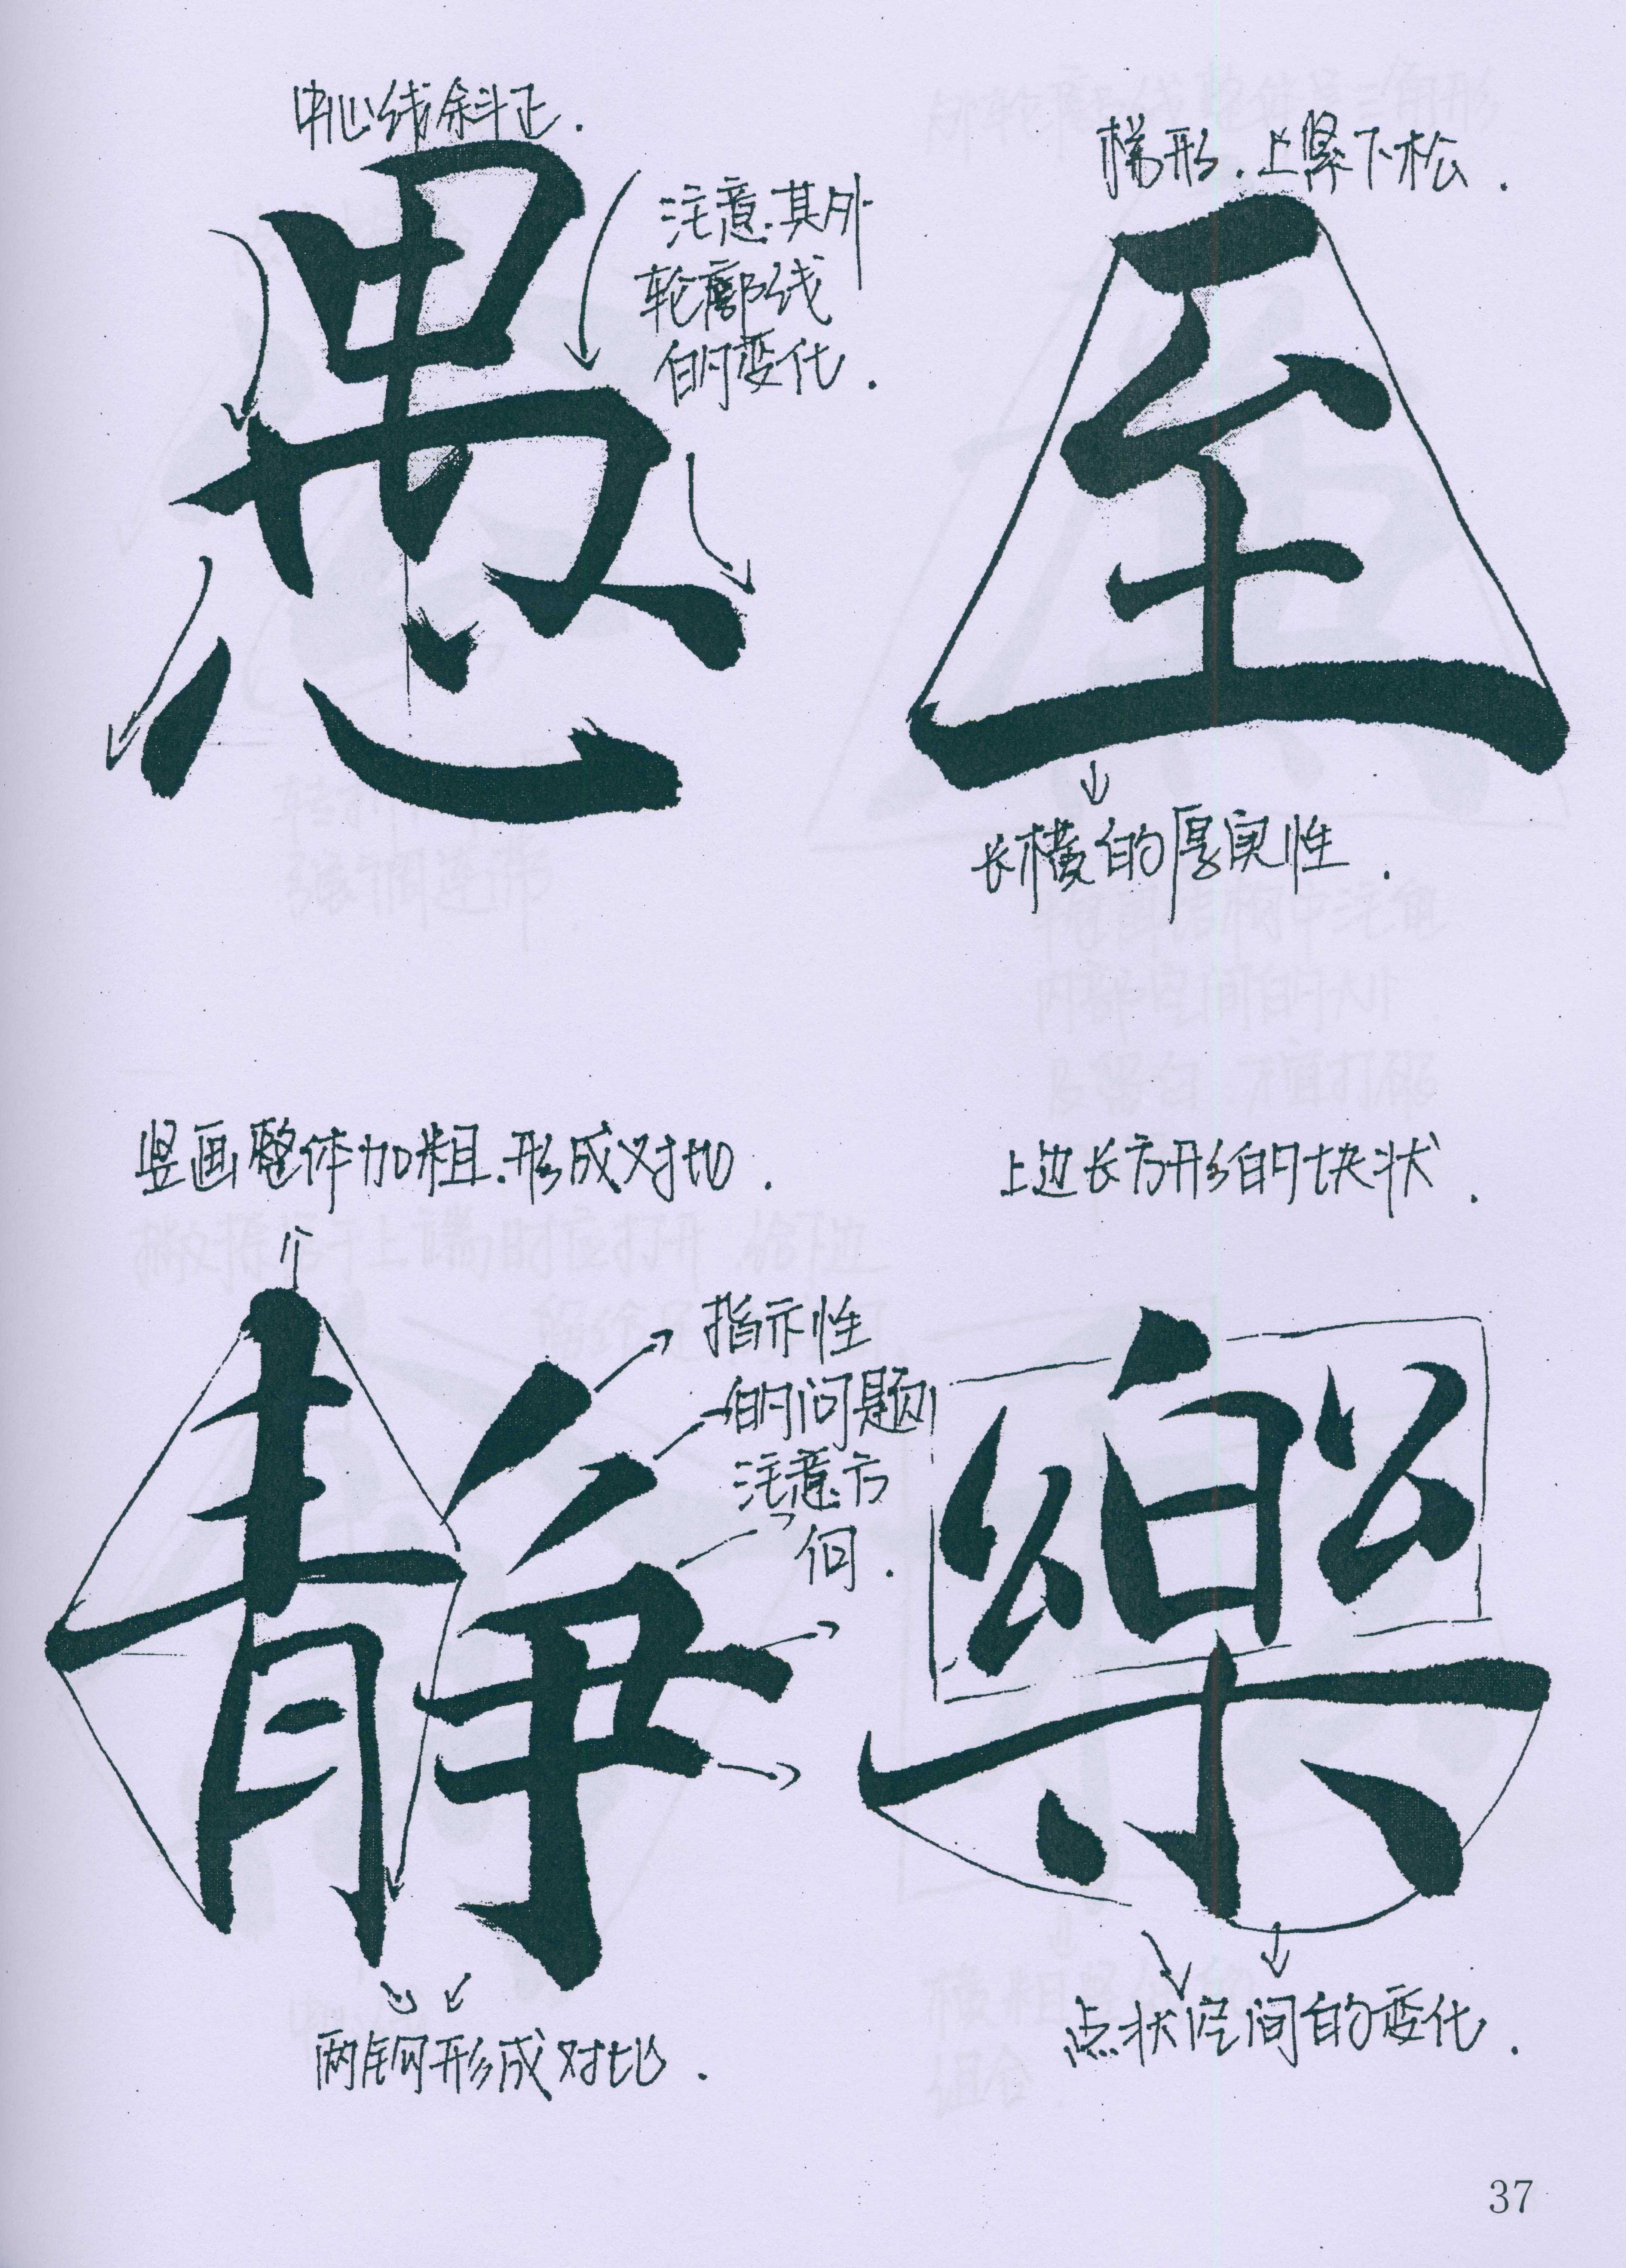 中心线斜正.
愚
注意.其外
轮廓线
的变化.
梯形.上紧下松.
至
长横的厚实性.
竖画整体加粗.形成对比.
静
指示性
的问题
注意方
向.
两钩形成对比.
上边长方形的块状.
樂
点状空间的变化.
37